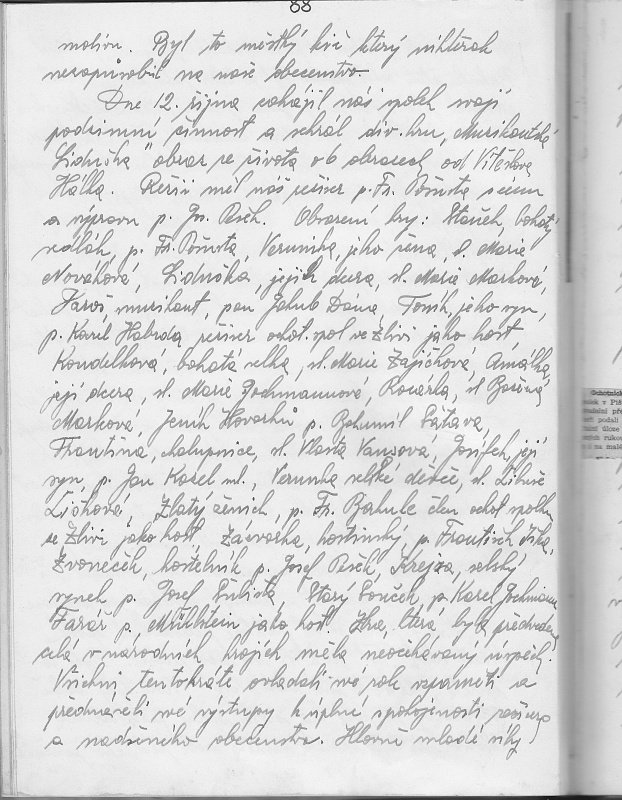 88
motivu. Byl to městký kýč který nikterak
nezapůsobil na naše obecenstvo.
Dne 12. října zahájil náš spolek svojí
podzimní činnost a sehrál div. hru, "Muzikantská
Lidunka" obraz ze života v 6 obrazech od Vítězslava
Hálka. Režii měl náš režiser p. Fr. Pošusta scenu
a výpravu p. Jos. Pech. Obsazení hry: Staněk, bohatý
sedlák, p. Fr. Pošusta, Verunika, jeho žena, sl. Marie
Nováková, Lidunka, jejich dcera, sl. Marie Marková,
Jaroš, muzikant, pan Jakub Dáňa, Toník, jeho syn,
p. Karel Habrda režiser ochot. spol ve Zlivi jako host
Koudelková, bohatá selka, sl. Marie Zajíčková, Amálka,
její dcera, sl. Marie Jochmannová, Rozárka, sl Božena
Marková, Jeník Hovorků p. Bohumil
Frantina, chalupnice, sl. Vlasta Vansova, Josífek, její
syn, p. Jan Kozel ml., Verunka selské děvče, sl. Libuše
Zlatý ženich, p. Fr. Bahule člen ochot spolku
ve Zlivi jako host hostinský, p. František
Zvoneček, kostelník p. Josef Pech, Krejza, selský
synek p. Josef Starý Souček, p. Karel Jochmann
Farář p. Mühlstein jako host Hra, která byla předvedena
celá v narodních krojích měla neočekávaný uspěch.
Všichni tentokráte ovladali své role zpaměti a
přednášeli své výstupy k úplné spokojenosti režisera
a nadšeného obecenstva. Hlavně mladé síly